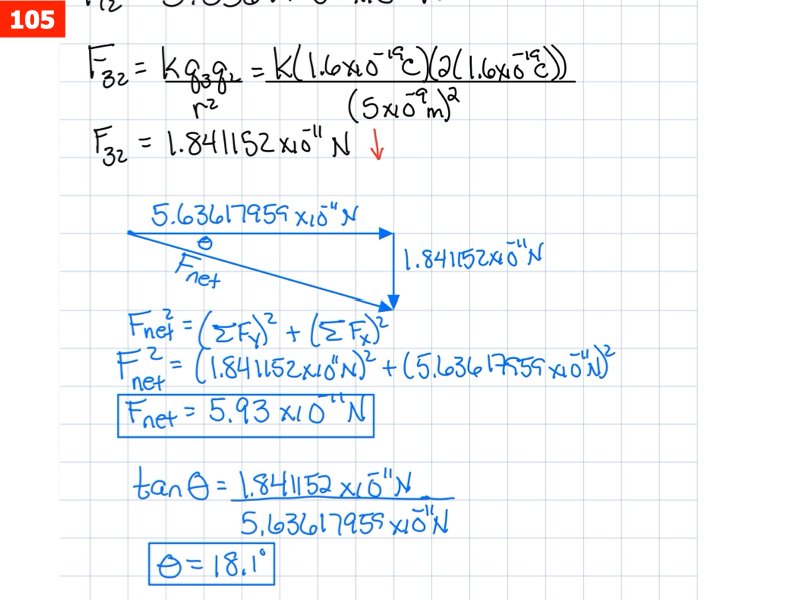 105
F₃₂ = kq₃q₂/r² = k(1.6x10⁻¹⁹C)(2(1.6x10⁻¹⁹C))/(5x10⁻⁹m)²
F₃₂ = 1.841152x10⁻¹¹ N ↓
5.63617959x10⁻¹¹N
θ
Fnet
1.841152x10⁻¹¹N
Fnet² = (ΣFy)² + (ΣFx)²
Fnet² = (1.841152x10⁻¹¹N)² + (5.63617959x10⁻¹¹N)²
Fnet = 5.93 x10⁻¹¹N
tan θ = 1.841152 x10⁻¹¹N / 5.63617959x10⁻¹¹N
θ = 18.1°